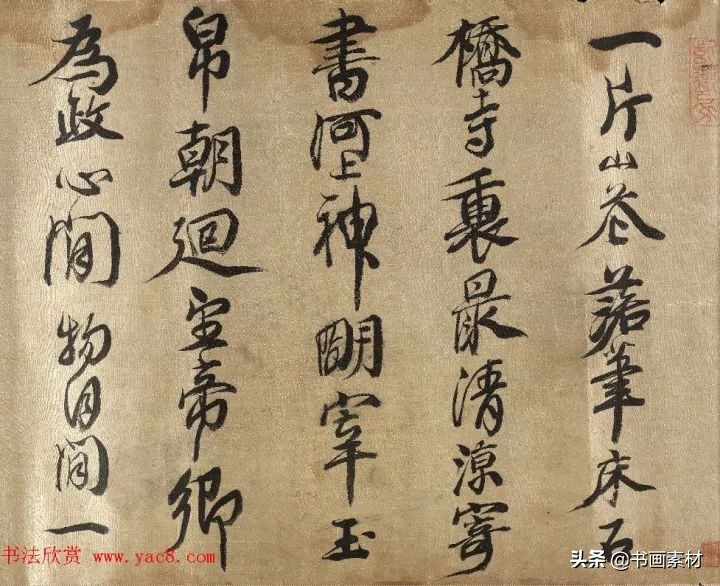 一片山花落筆床石
橋寺裏最清涼寄
書河上神明宰玉
帛朝迴望帝鄉
為政心閒物自閒一
书法欣赏 www.yac8.com
头条 @书画素材